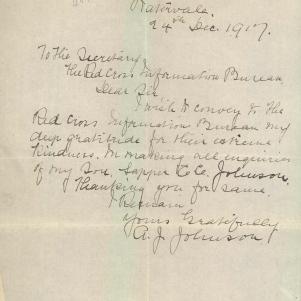 Watervale.
24th Dec. 1917.
To the Secretary
The Red Cross Information Bureau.
Dear Sir
I wish to convey to the
Red Cross Information Bureau my
deep gratitude for their extreme
kindness. In making all inquiries
of my Son, Sapper Johnson.
Thanking you for same.
I Remain
Yours Gratefully
A. J. Johnson